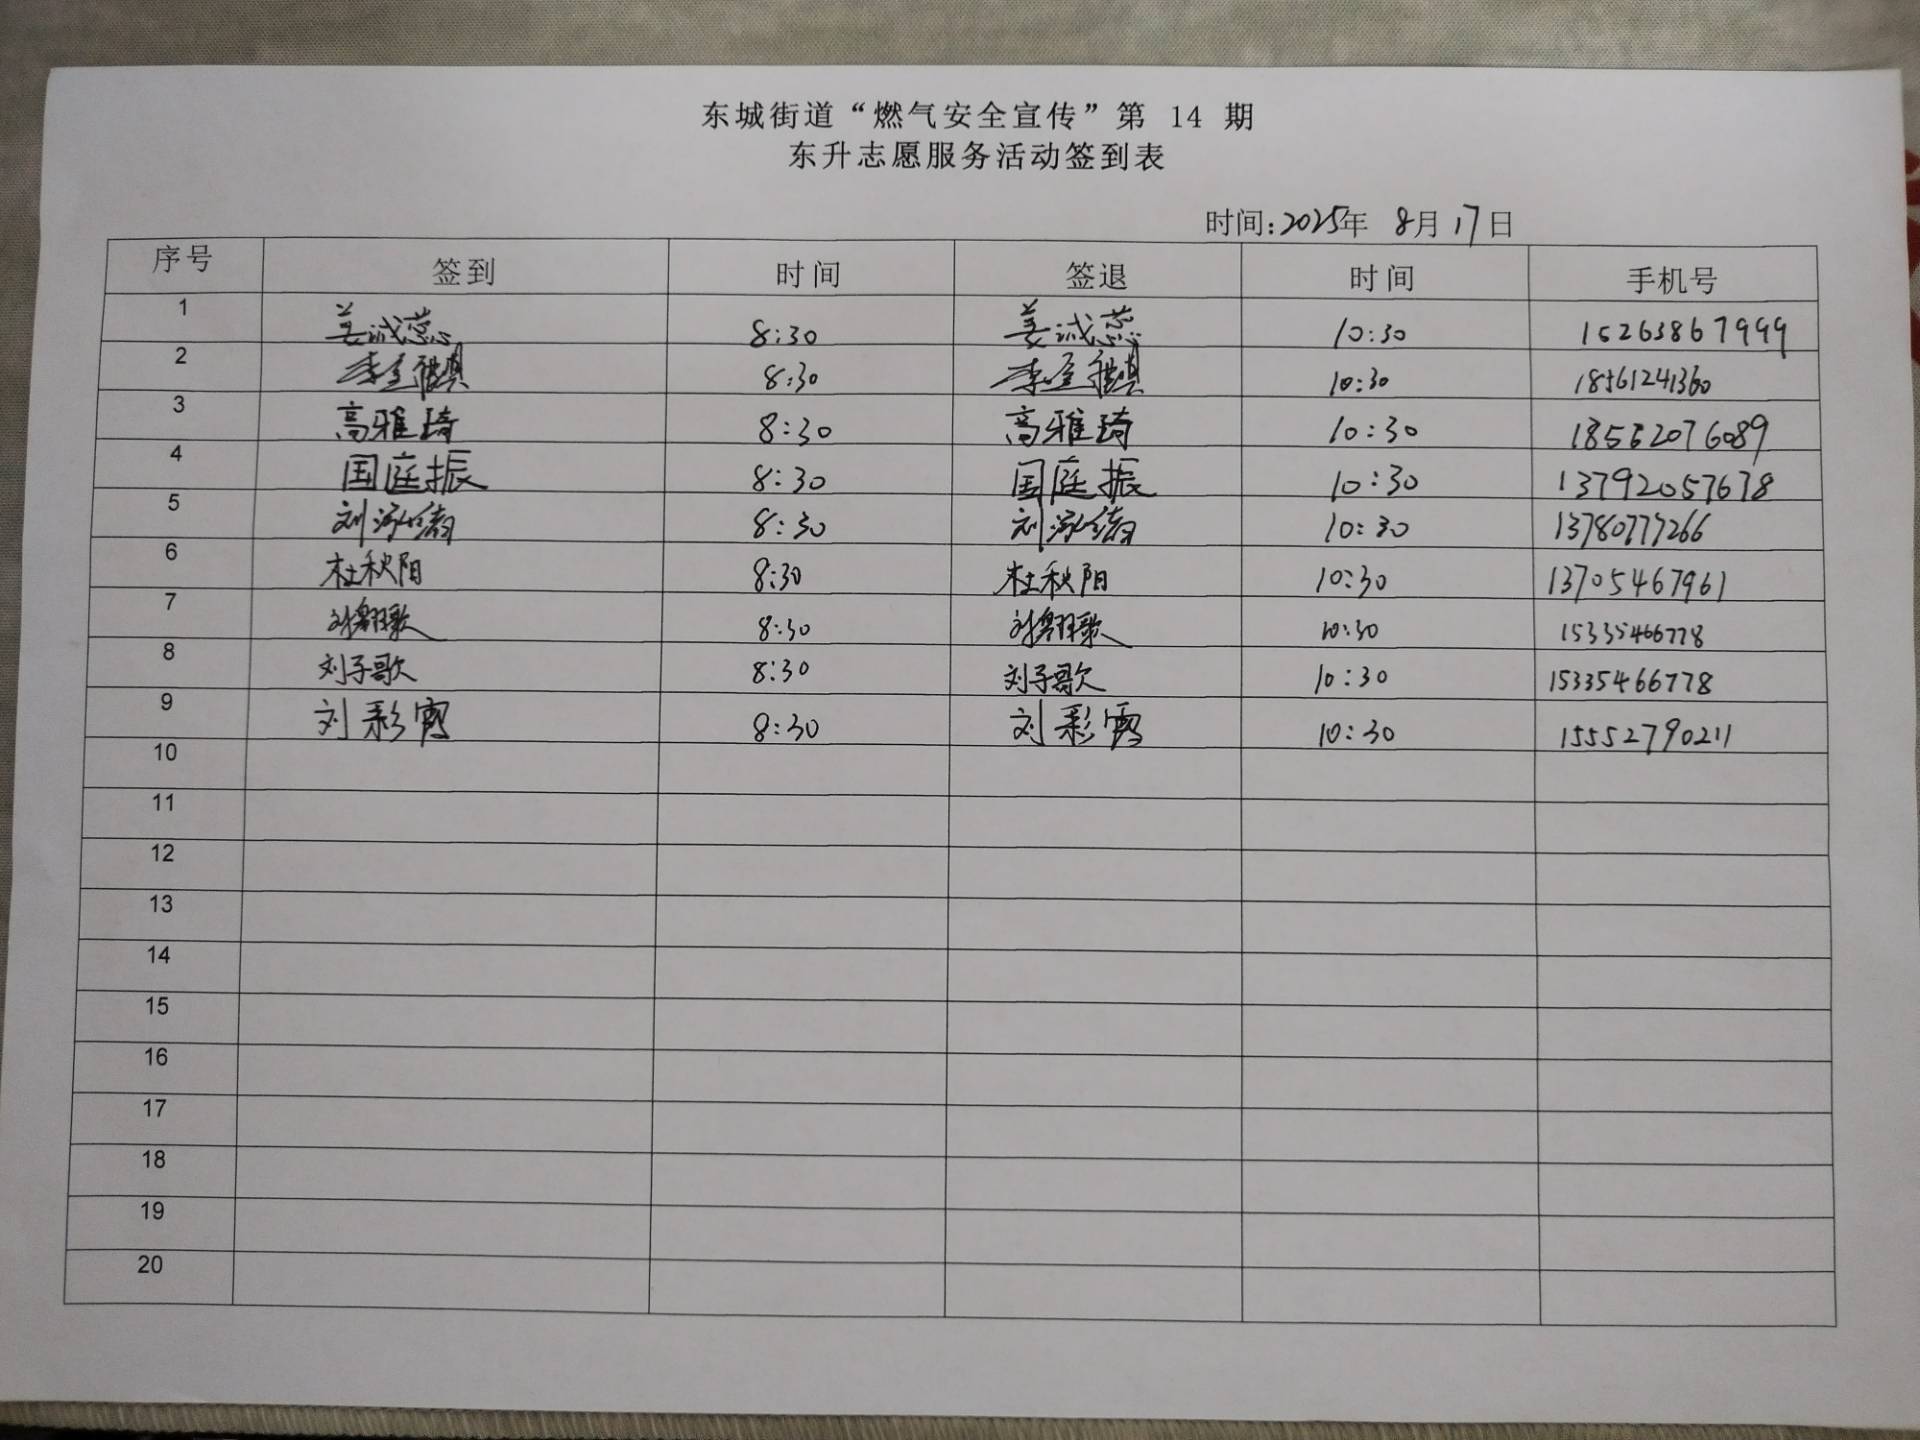 东城街道“燃气安全宣传”第 14 期
东升志愿服务活动签到表
时间:2025年 8月17日
序号 签到 时间 签退 时间 手机号
1 姜诚蕊 8:30 姜诚蕊 10:30 15263867999
2 李 8:30 李 10:30 18561241360
3 高雅琦 8:30 高雅琦 10:30 18562076089
4 国庭振 8:30 国庭振 10:30 13792057678
5 刘泓 8:30 刘泓 10:30 13780777266
6 杜秋阳 8:30 杜秋阳 10:30 13705467961
7 刘翱歌 8:30 刘翱歌 10:30 15335466778
8 刘子歌 8:30 刘子歌 10:30 15335466778
9 刘彩霞 8:30 刘彩霞 10:30 15552790211
10
11
12
13
14
15
16
17
18
19
20